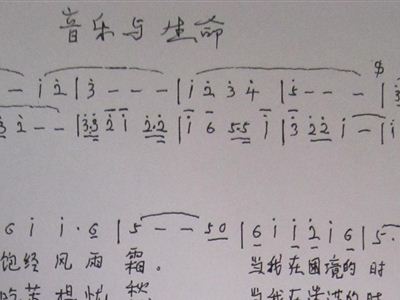 音乐与生命
- - i 2 | 3 - - - | i 2 3 4 | 5 - - - | 3
3 2 - - | 3·3 2 i 2·2 | i 6 5·5 i | 3 2 2 i - | i
6 i i · 6 | 5 - - 5 0 | 6 i i 2 i 6 | 5 ·
饱经风雨霜。 当我在困境的时
吃苦 当我在